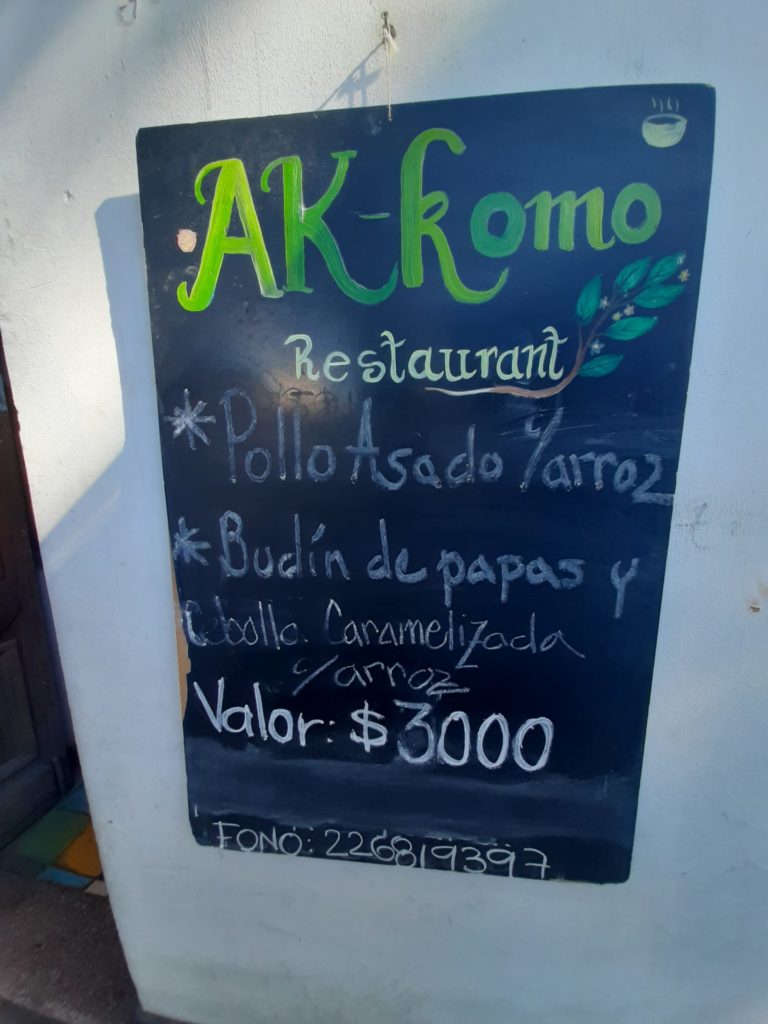 AK-Komo
Restaurant
* Pollo Asado c/arroz
* Budín de papas y
Cebolla Caramelizada
c/arroz
Valor: $3000
FONO: 226819397